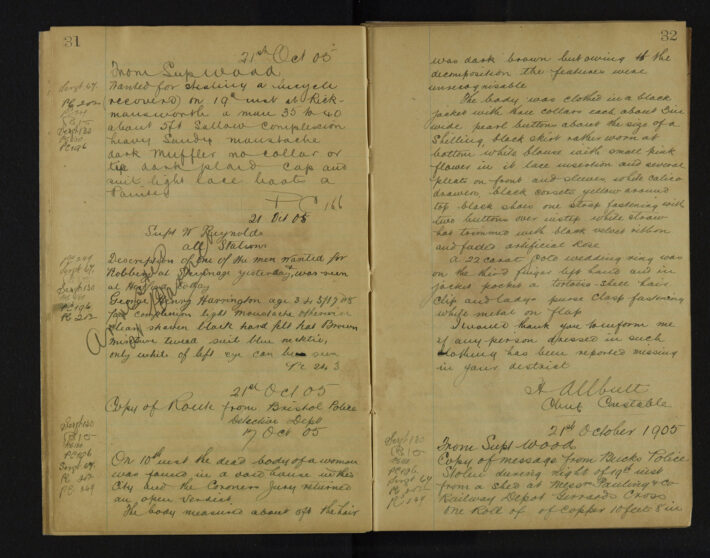 31
21st Oct 05
From Sup Wood
Wanted for stealing a bicycle
recovered on 19th inst at Rick-
mansworth a man 35 to 40
about 5ft Sallow Complexion
heavy Sandy moustache
dark muffler no collar or
tie dark plaid Cap and
suit light lace boots a
Painter
PC 166
21 Oct 05
Supt W Reynolds
all Stations
Description of one of the men wanted for
Robbery at yesterday, was seen
at today
George Harrington age 34 5/17 08
fair complexion light moustache otherwise
clean shaven black hard felt hat Brown
mixture tweed suit blue necktie,
only white of left eye can be seen
PC 243
21st Oct 05
Copy of Route from Bristol Police
Detective Dept
17 Oct 05
On 10th inst the dead body of a woman
was found in a void house in this
City and the Coroners Jury returned
an open verdict.
The body measured about 5ft the hair
Sergt 67
PC 202
PC 15
Sergt 130
PC 196
Sergt 67
Sergt 130
PC 196
PC 202
Sergt 130
PC 15
PC 196
Sergt 67
PC 202
PC 249
32
was dark brown but owing to the
decomposition the features were
unrecognisable
The body was clothed in a black
jacket with three collars each about 6in
wide pearl buttons about the size of a
Shilling, black skirt rather worn at
bottom white blouse with small pink
flower in it lace insertion and several
pleats on front and sleeves white calico
drawers, black corsets yellow around
top black shoes one strap fastening with
two buttons over instep white straw
hat trimmed with black velvet ribbon
and faded artificial Rose
A 22 carat Gold wedding ring was
on the third finger left hand and in
jacket pocket a tortoise-shell hair
Clip and ladys purse Clasp fastening
white metal on flap
I would thank you to inform me
if any person dressed in such
Clothing has been reported missing
in your district
H Allbutt
Chief Constable
21st October 1905
From Supt Wood
Copy of message from Bucks Police
Stolen during night of 19th inst
from a shed at Messrs Pauling & Co
Railway Depot Gerrards Cross
one Roll of of Copper 10 feet 8 in
Sergt 130
PC 15
PC 196
Sergt 67
PC 202
PC 249